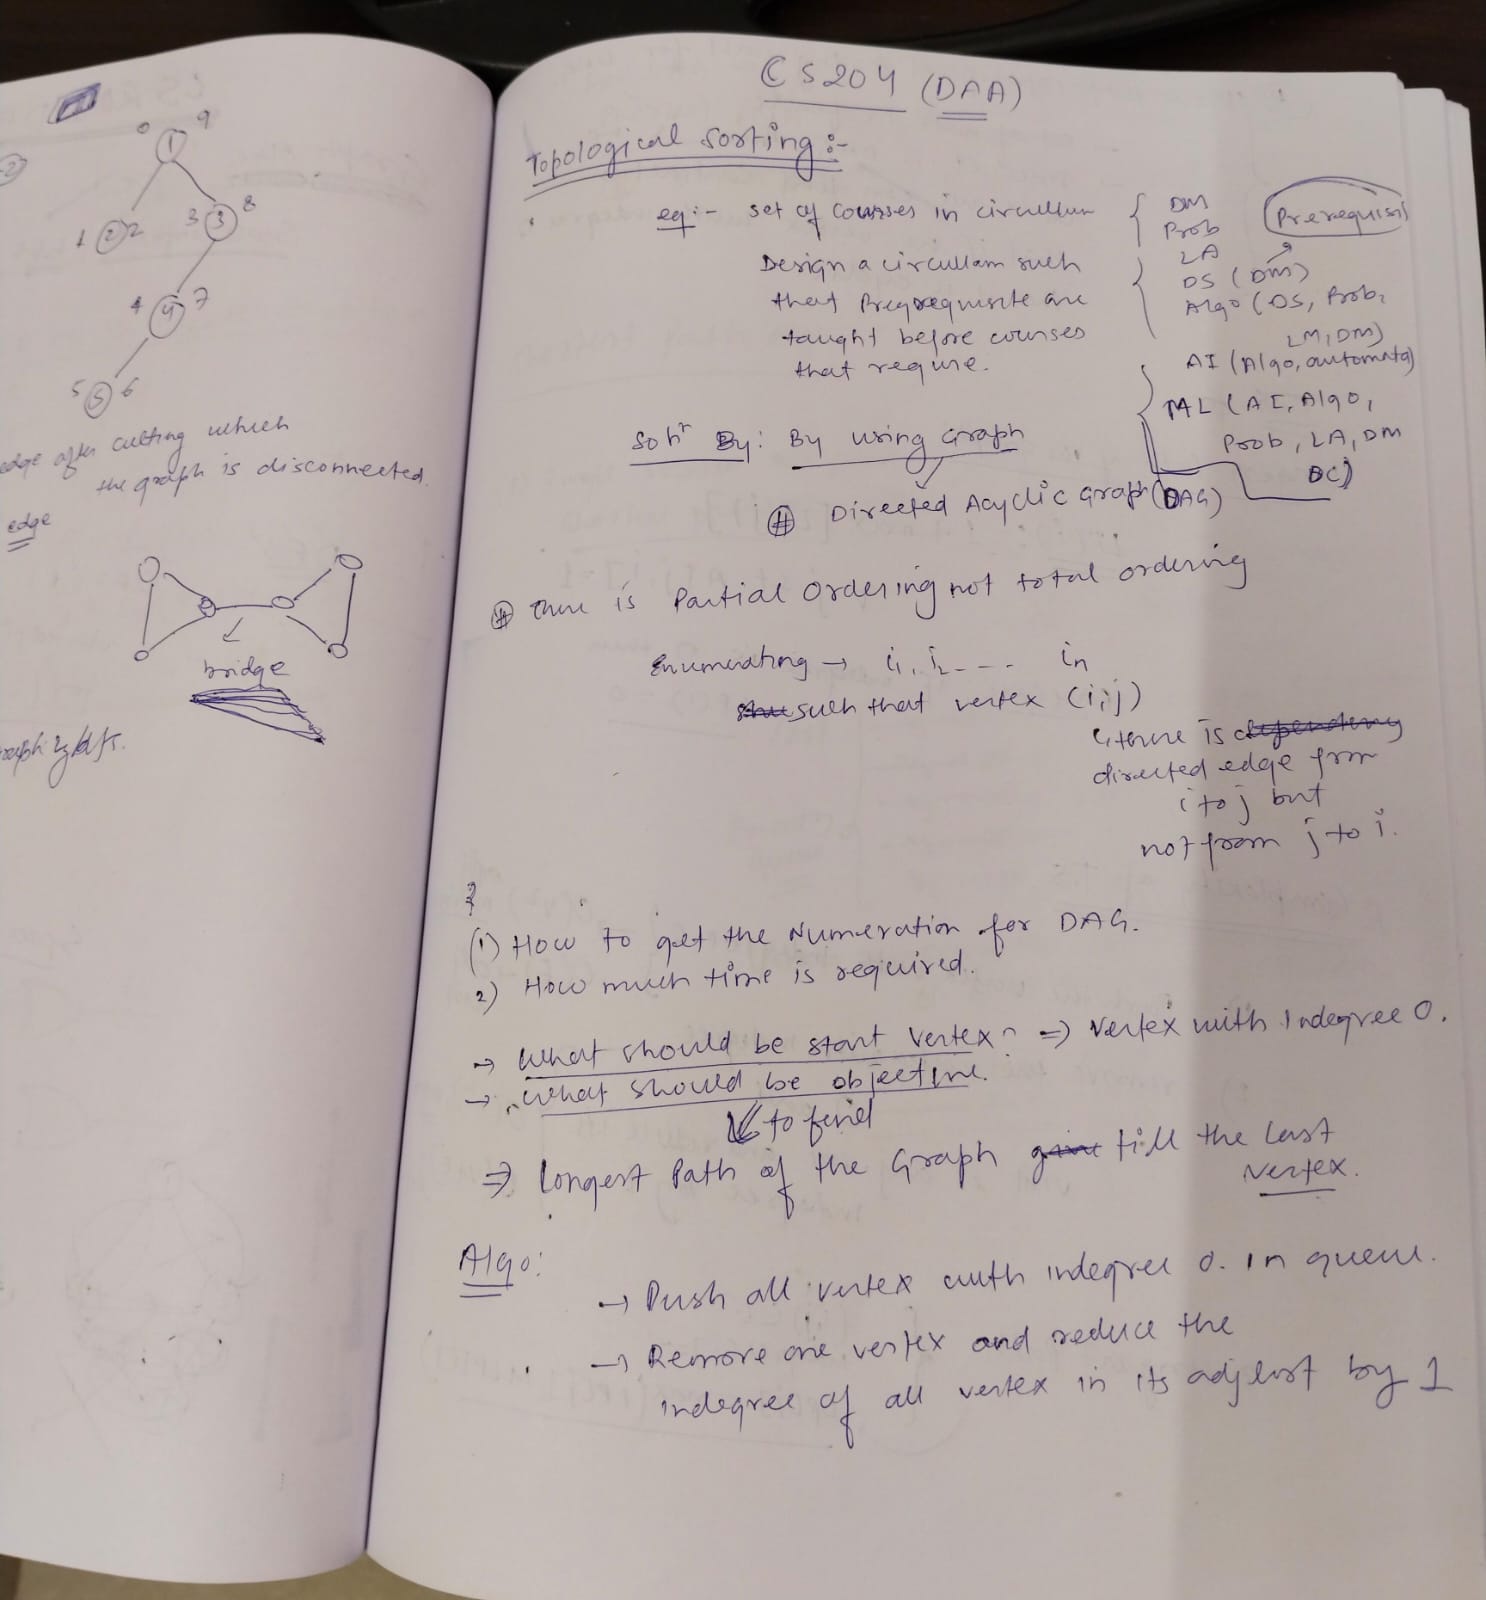 0 9
1
1 2 2 3 3 8
4 4 7
5 5 6
edge after cutting which
the graph is disconnected.
edge
bridge
CS204 (DAA)
Topological Sorting :-
eg:- set of courses in circullum
Design a circullam such
that Preqrequisite are
taught before courses
that require.
DM
Prob
LA
DS (DM)
Algo (DS, Prob,
LM, DM)
AI (Algo, automata)
ML (AI, Algo,
Prob, LA, DM
DC)
Prerequisi
Solⁿ By: By using Graph
# Directed Acyclic Graph (DAG)
# There is Partial Ordering not total ordering
Enumerating → i1, i2 - - - . in
such that vertex (i,j)
there is dependency
directed edge from
i to j but
not from j to i.
(1) How to get the Numeration for DAG.
2) How much time is required.
→ What should be start vertex? ⇒ Vertex with Indegree 0.
→ What should be objective.
to find
⇒ Longest Path of the Graph till the last
vertex.
Algo:
→ Push all vertex with indegree 0. in queue.
→ Remove one vertex and reduce the
indegree of all vertex in its adj list by 1